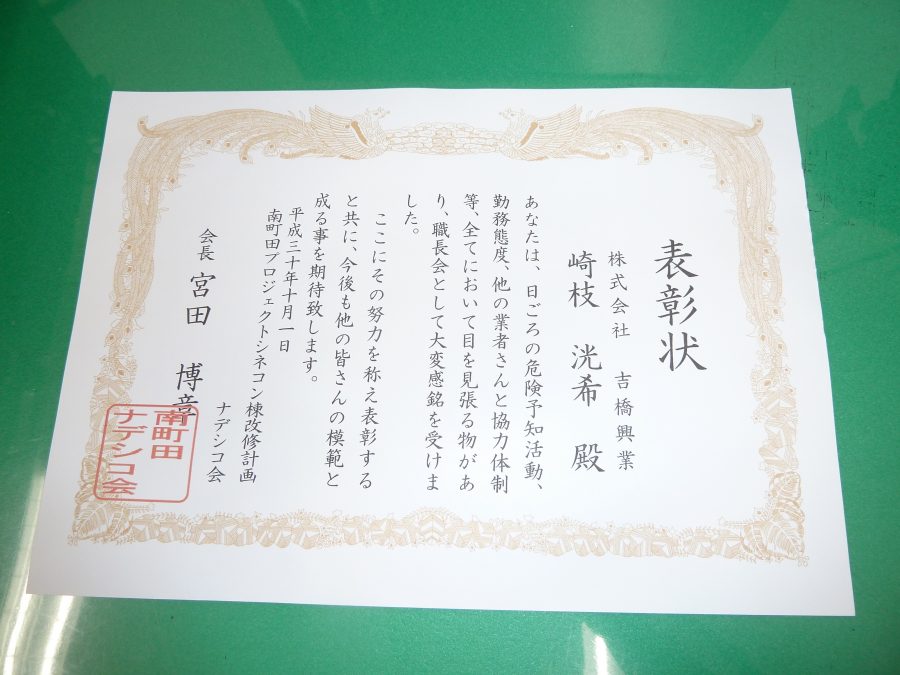 表彰状
株式会社 吉橋興業
崎枝 洸希 殿
あなたは、日ごろの危険予知活動、
勤務態度、他の業者さんと協力体制
等、全てにおいて目を見張る物があ
り、職長会として大変感銘を受けま
した。
ここにその努力を称え表彰する
と共に、今後も他の皆さんの模範と
成る事を期待致します。
平成三十年十月一日
南町田プロジェクトシネコン棟改修計画
ナデシコ会
会長 宮田 博章
南町田
ナデシコ会